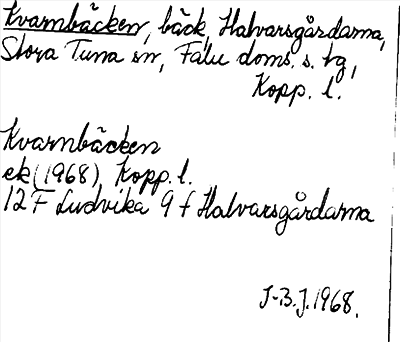 Kvarnbäcken, bäck, Halvarsgårdarna,
Stora Tuna sn, Falu doms. s. tg,
Kopp. l.
Kvarnbäcken
ek (1968) Kopp. l.
12 F Ludvika 9 f Halvarsgårdarna
J-B.J. 1968.